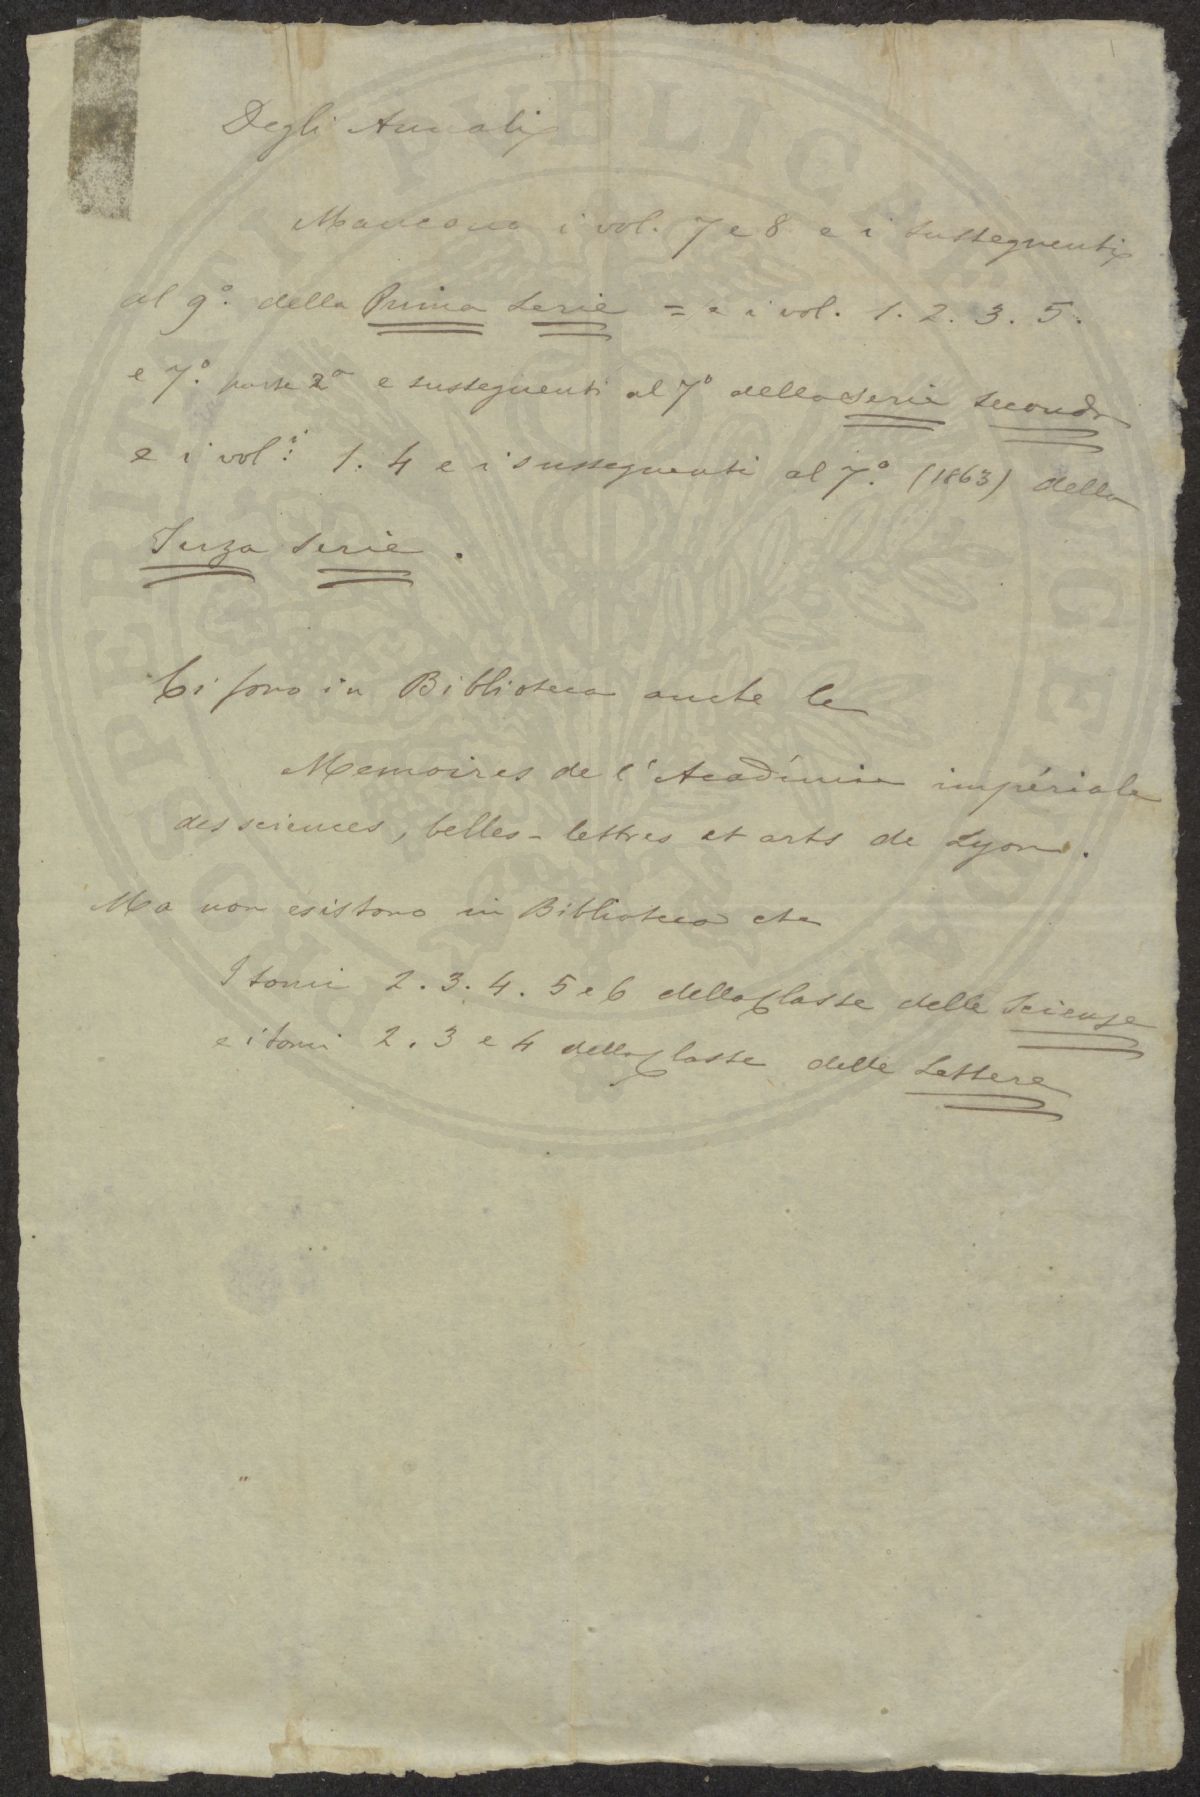 Degli Annali
Mancano i vol. 7 e 8 e i susseguenti
al 9º. della Prima Serie = e i vol. 1. 2. 3. 5.
e 7º. parte 2ª e susseguenti al 7º della Serie Seconda
e i vol.i 1. 4 e i susseguenti al 7º. (1863) della
Terza Serie.
Ci sono in Biblioteca anche le
Memoires de l'Académie impériale
des sciences, belles-lettres et arts de Lyon.
Ma non esistono in Biblioteca che
I tomi 2. 3. 4. 5 e 6 della Classe delle Scienze
e i tomi 2. 3 e 4 della Classe delle Lettere